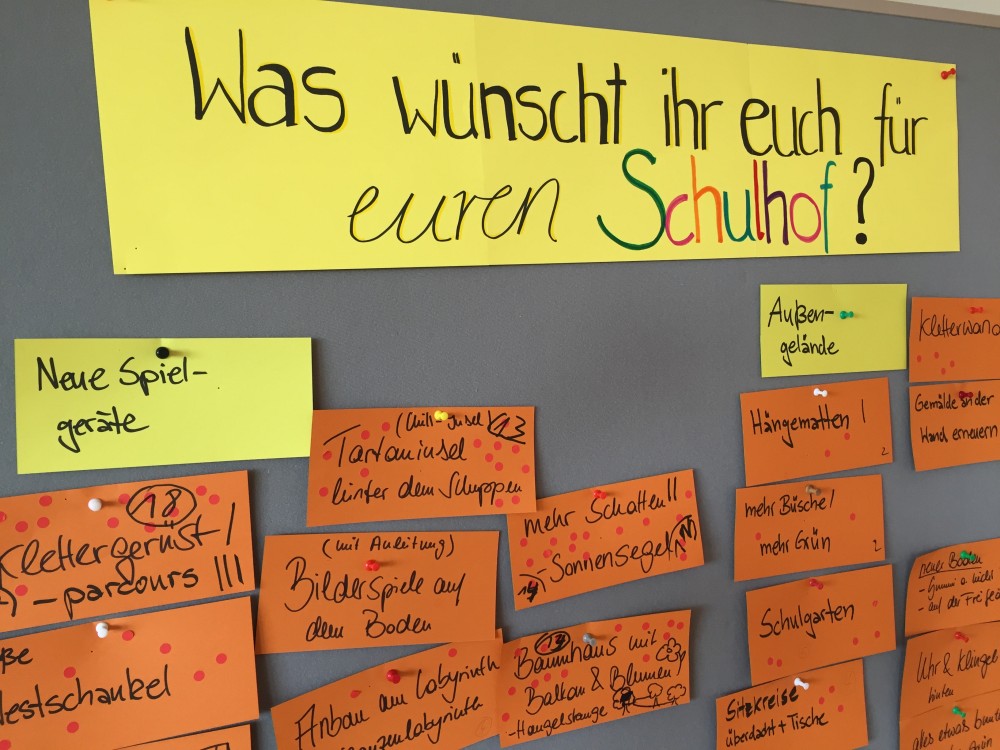 Was wünscht ihr euch für
euren Schulhof?
Neue Spiel-
geräte
18
Klettergerüst/
-parcours !!!
Nestschaukel
13
Tartaninsel
hinter dem Schuppen
(mit Anleitung)
Bilderspiele auf
dem Boden
Anbau am Labyrinth
mehr Schatten!!
Sonnensegel
Baumhaus mit
Balkon & Blumen/
-Hangelstange
Außen-
gelände
Hängematten!
2
mehr Büsche/
mehr Grün
2
Schulgarten
Sitzkreise
überdacht + Tische
Kletterwand
Gemälde an der
Wand erneuern
neuer Boden
Uhr & Klingel
hinten
alles etwas bunter